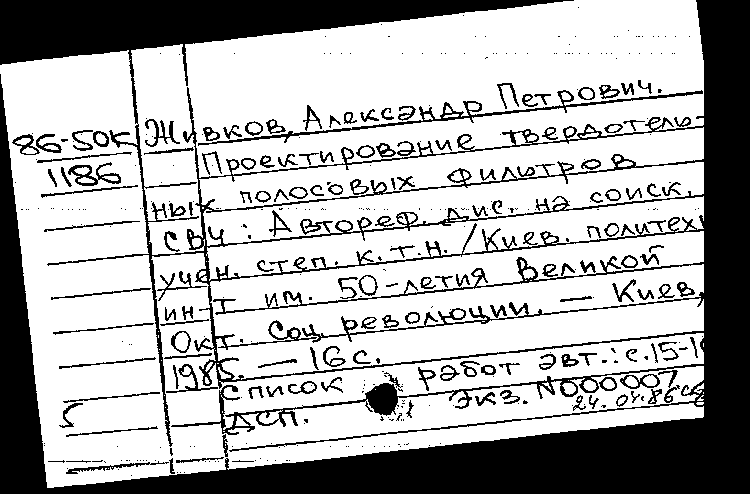 86-50к
1186
Живков, Александр Петрович.
Проектирование твердотель-
ных полосовых фильтров
СВЧ : Автореф. дис. на соиск.
учен. степ. к.т.н. / Киев. политехн
ин-т им. 50-летия Великой
Окт. Соц. революции. — Киев,
1985. — 16 с.
Список работ авт.: с.15-16
ДСП. Экз. N000007
24.04.86
5